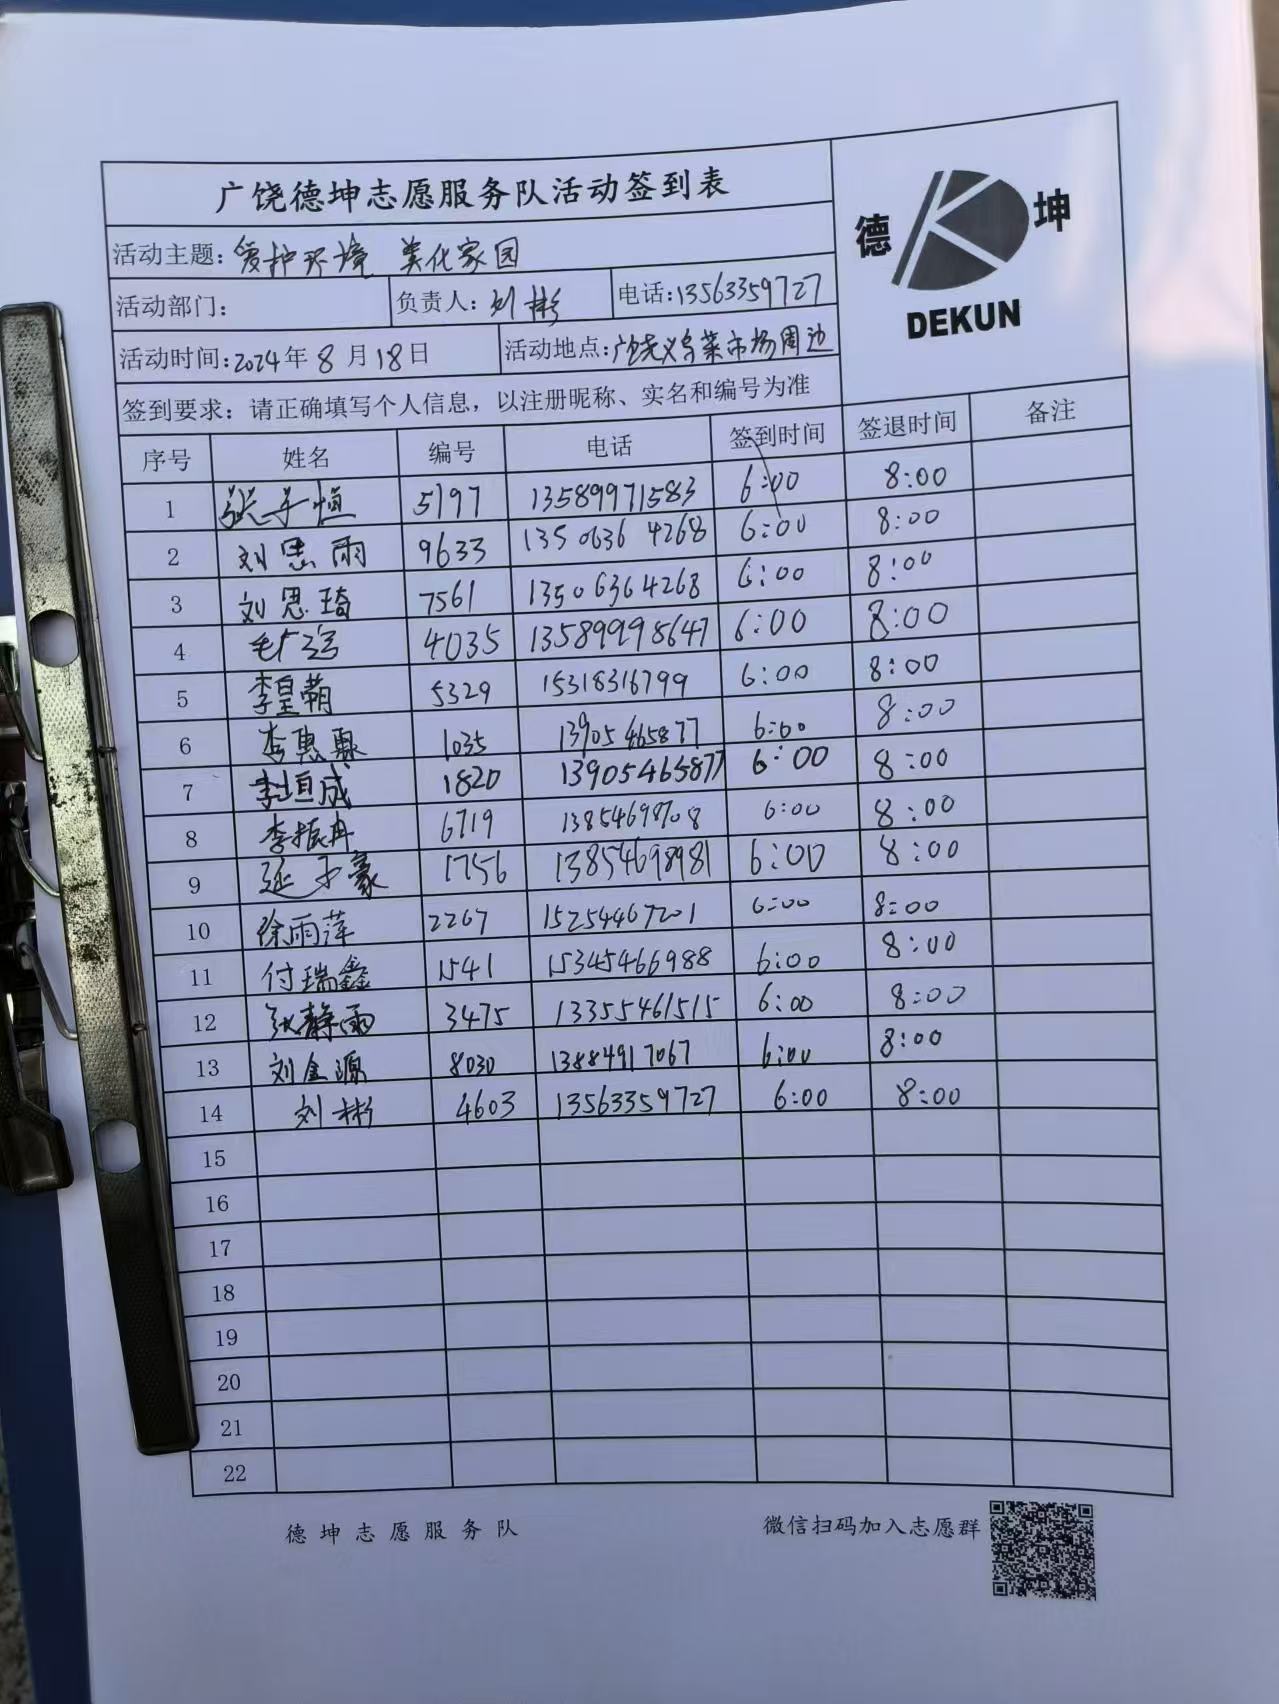 广饶德坤志愿服务队活动签到表
德 坤
DEKUN
活动主题：爱护环境 美化家园
活动部门： 负责人：刘彬 电话：13563359727
活动时间：2024年8月18日 活动地点：广饶义乌菜市场周边
签到要求：请正确填写个人信息，以注册昵称、实名和编号为准
序号 姓名 编号 电话 签到时间 签退时间 备注
1 张子恒 5197 13589971583 6:00 8:00
2 刘思雨 9633 13506364268 6:00 8:00
3 刘思琦 7561 13506364268 6:00 8:00
4 4035 13589998647 6:00 8:00
5 李皇霸 5329 15318316799 6:00 8:00
6 李惠 1035 13905465877 6:00 8:00
7 李垣成 1820 13905465877 6:00 8:00
8 李振冉 6719 13854698708 6:00 8:00
9 延子豪 1756 13854698981 6:00 8:00
10 徐雨萍 2267 15254467201 6:00 8:00
11 付瑞鑫 1541 15345466988 6:00 8:00
12 张静雨 3475 13355461515 6:00 8:00
13 刘金源 8030 13884917067 6:00 8:00
14 刘彬 4603 13563359727 6:00 8:00
15
16
17
18
19
20
21
22
德坤志愿服务队 微信扫码加入志愿群